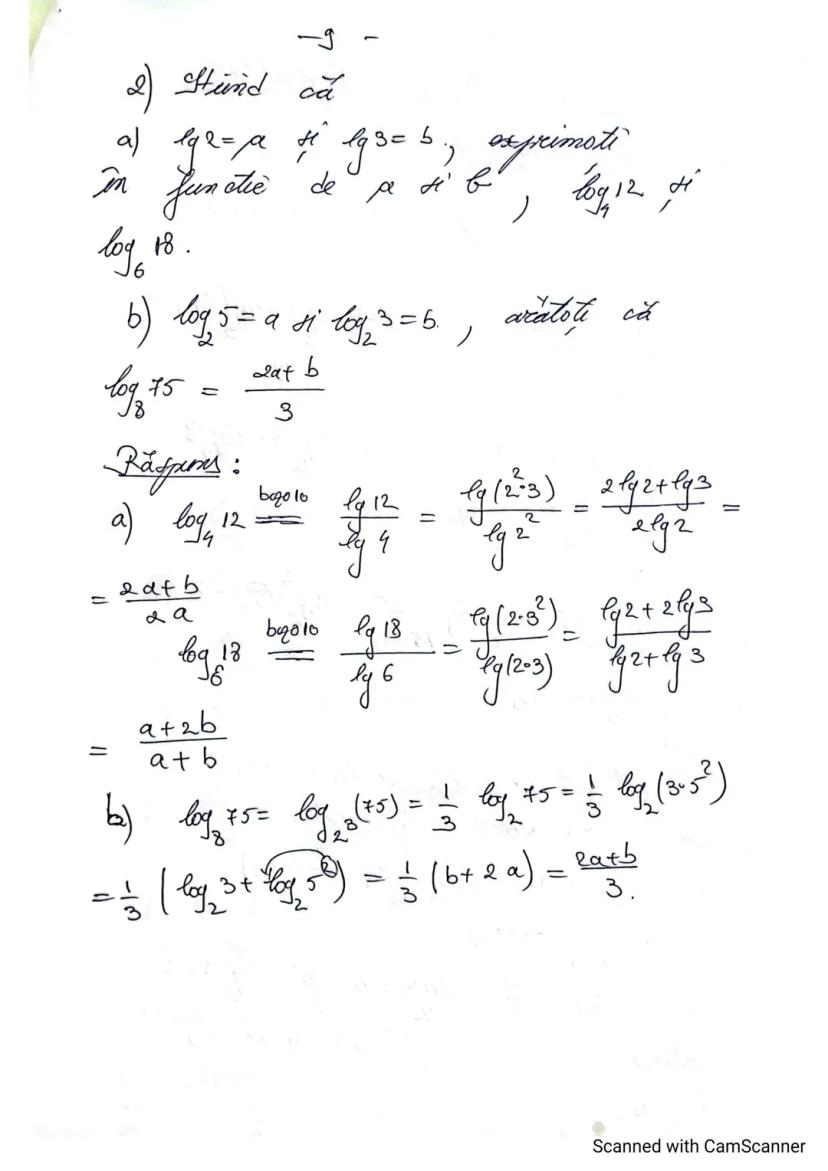 -9-
2) Știind că
a) lg2=a și lg3=b, exprimați
în funcție de a și b, log₄12 și
log₆18.
b) log₂5=a și log₂3=b, arătați că
log₈75 = (2a+b)/3
Răspuns:
a) log₄12 =(baza 10)= lg12/lg4 = lg(2²·3)/lg2² = (2lg2+lg3)/(2lg2) =
= (2a+b)/(2a)
log₆18 =(baza 10)= lg18/lg6 = lg(2·3²)/lg(2·3) = (lg2+2lg3)/(lg2+lg3)
= (a+2b)/(a+b)
b) log₈75 = log_{2³}(75) = 1/3 log₂75 = 1/3 log₂(3·5²)
= 1/3 (log₂3 + log₂5²) = 1/3 (b+2a) = (2a+b)/3.
Scanned with CamScanner